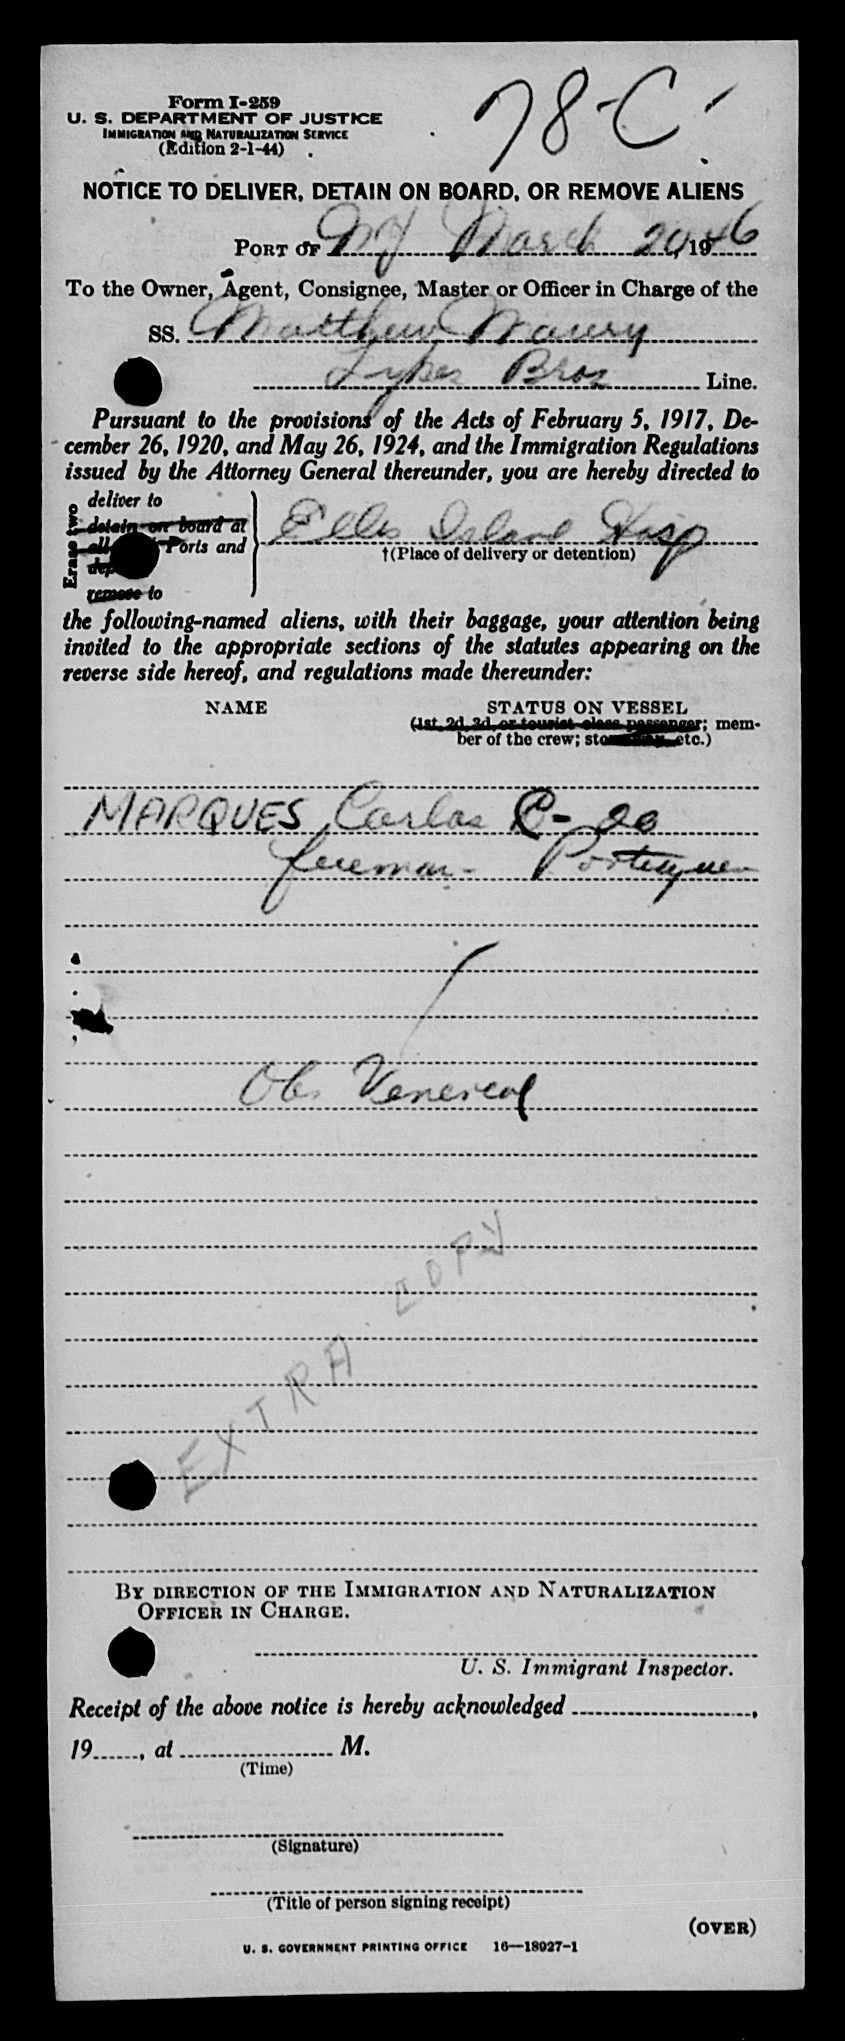 78-C
Form I-259
U. S. DEPARTMENT OF JUSTICE
IMMIGRATION AND NATURALIZATION SERVICE
(Edition 2-1-44)
NOTICE TO DELIVER, DETAIN ON BOARD, OR REMOVE ALIENS
PORT OF NY March 20, 1946
To the Owner, Agent, Consignee, Master or Officer in Charge of the
SS. Matthew Maury
Lykes Bros Line.
Pursuant to the provisions of the Acts of February 5, 1917, De-
cember 26, 1920, and May 26, 1924, and the Immigration Regulations
issued by the Attorney General thereunder, you are hereby directed to
Erase two
deliver to
detain on board at
all Ports and
remove to
Ellis Island Hosp
†(Place of delivery or detention)
the following-named aliens, with their baggage, your attention being
invited to the appropriate sections of the statutes appearing on the
reverse side hereof, and regulations made thereunder:
NAME STATUS ON VESSEL
(1st, 2d, 3d, or tourist class passenger; mem-
ber of the crew; etc.)
MARQUES, Carlos C- 20
fireman - Portuguese
Obs Venereal
EXTRA COPY
BY DIRECTION OF THE IMMIGRATION AND NATURALIZATION
OFFICER IN CHARGE.
U. S. Immigrant Inspector.
Receipt of the above notice is hereby acknowledged ,
19 , at M.
(Time)
(Signature)
(Title of person signing receipt)
(OVER)
U. S. GOVERNMENT PRINTING OFFICE 16—18027-1